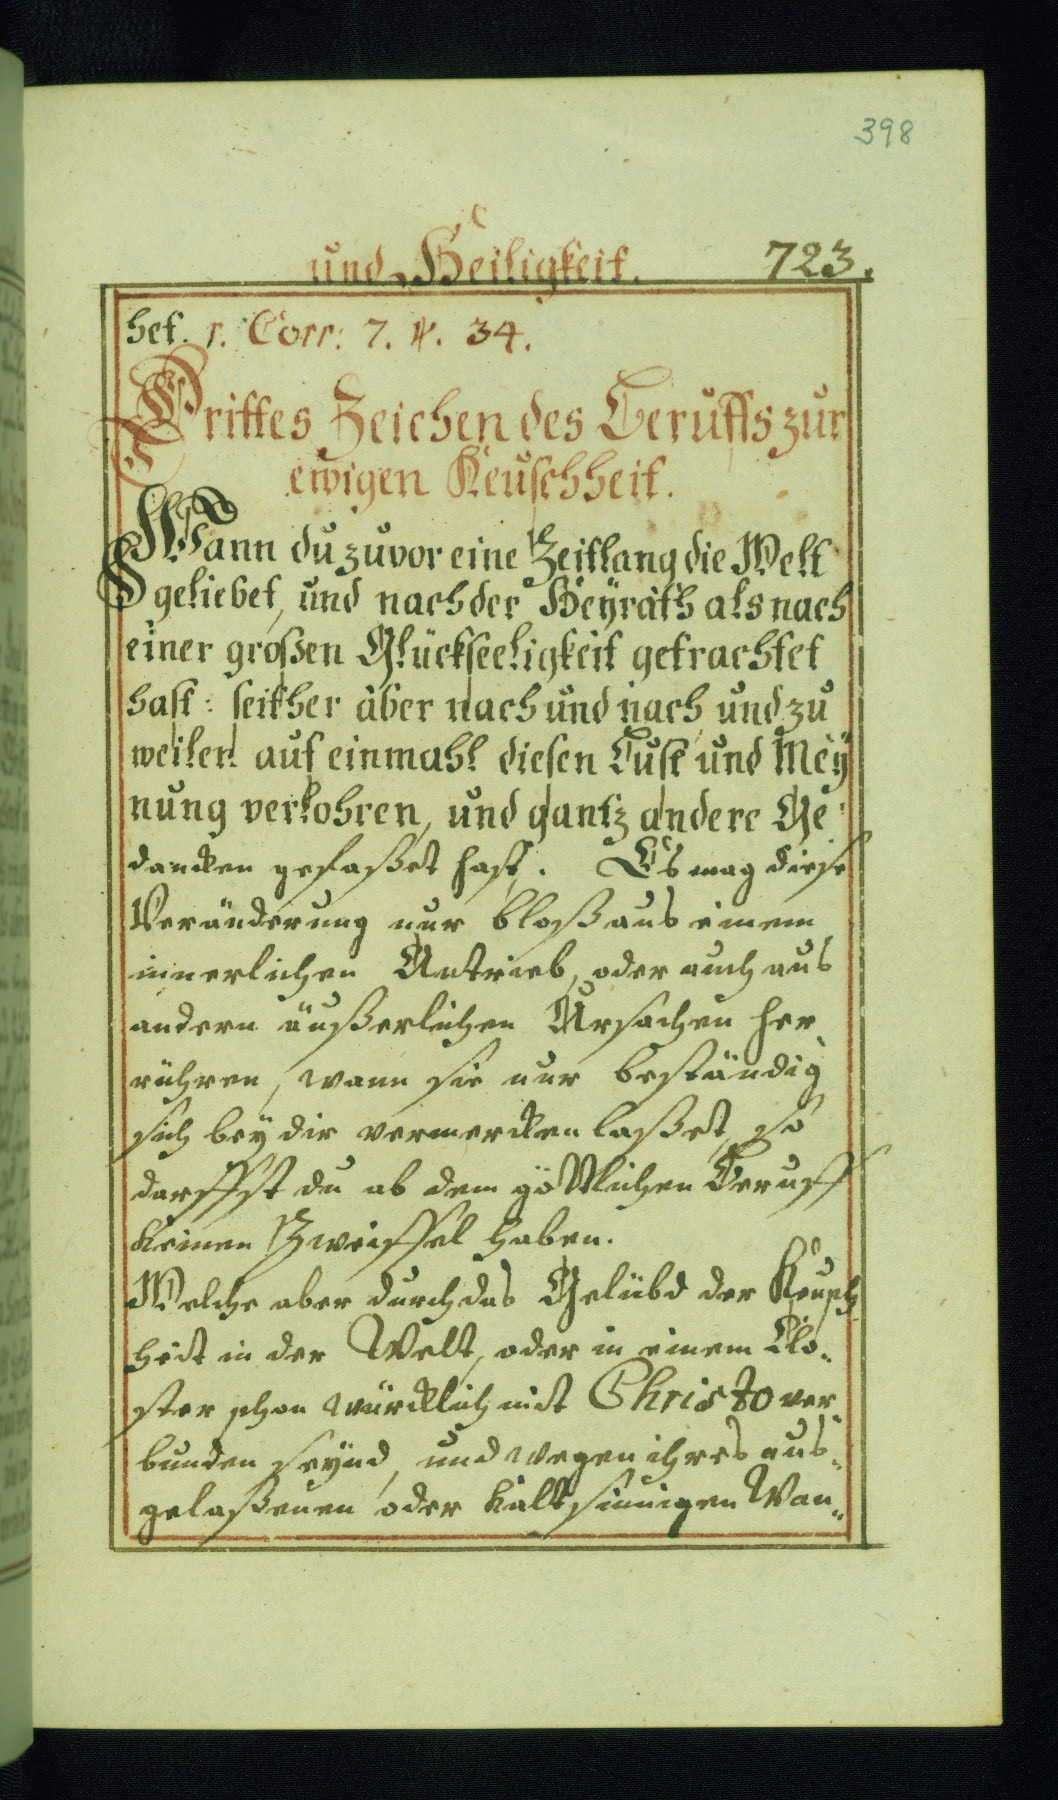 398
und Heiligkeit. 723.
het. 1. Corr: 7. ℣. 34.
Drittes Zeichen des Beruffs zur
ewigen Keuschheit.
Wann du zuvor eine Zeitlang die Welt
geliebet, und nach der Heÿrath als nach
einer großen Glückseeligkeit getrachtet
hast: seither aber nach und nach, und zu
weilen auf einmahl diesen Lust und Meÿ
nung verlohren, und gantz andere Ge-
dancken gefaßet hast. Es mag diese
Veränderung nur bloß aus einem
innerlichen Antrieb, oder auch aus
andern äußerlichen Ursachen her
rühren, wann sie nur beständig
sich beÿ dir vermercken laßet, so
darffst du ab dem göttlichen Beruff
keinen Zweiffel haben.
Welche aber durch das Gelübd der Keusch
heit in der Welt, oder in einem Clo-
ster schon würcklich mit Christo ver
bunden seÿnd, und wegen ihres aus-
gelaßenen oder kaltsinnigen Wan-